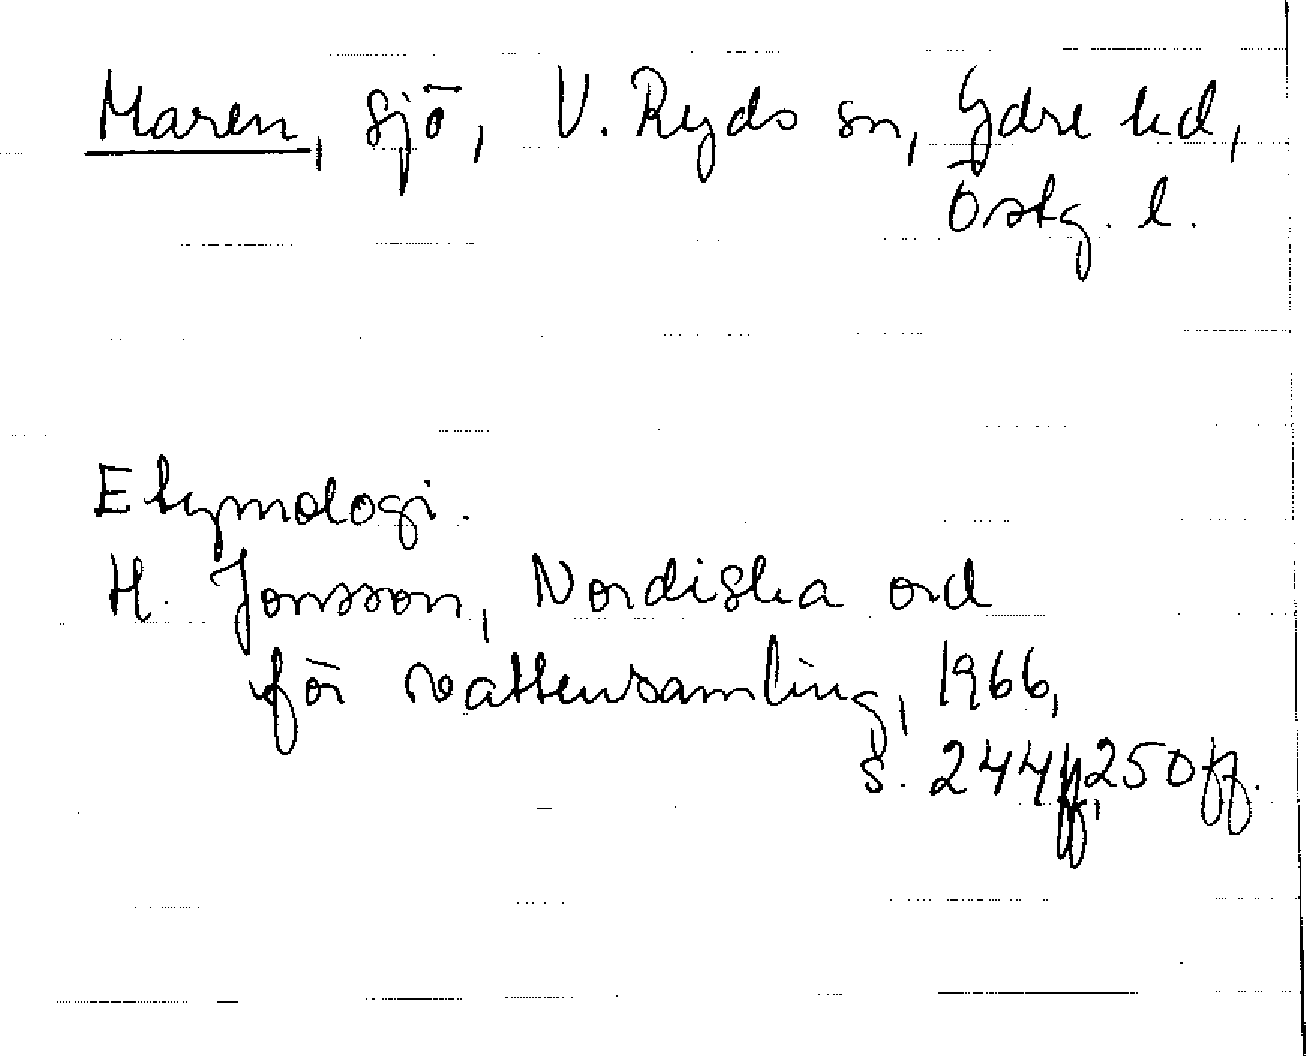 Maren, sjö, V. Ryds sn, Ydre hd,
Östg. l.
Etymologi.
H. Jonsson, Nordiska ord
för vattensamling, 1966,
s. 244ff, 250ff.